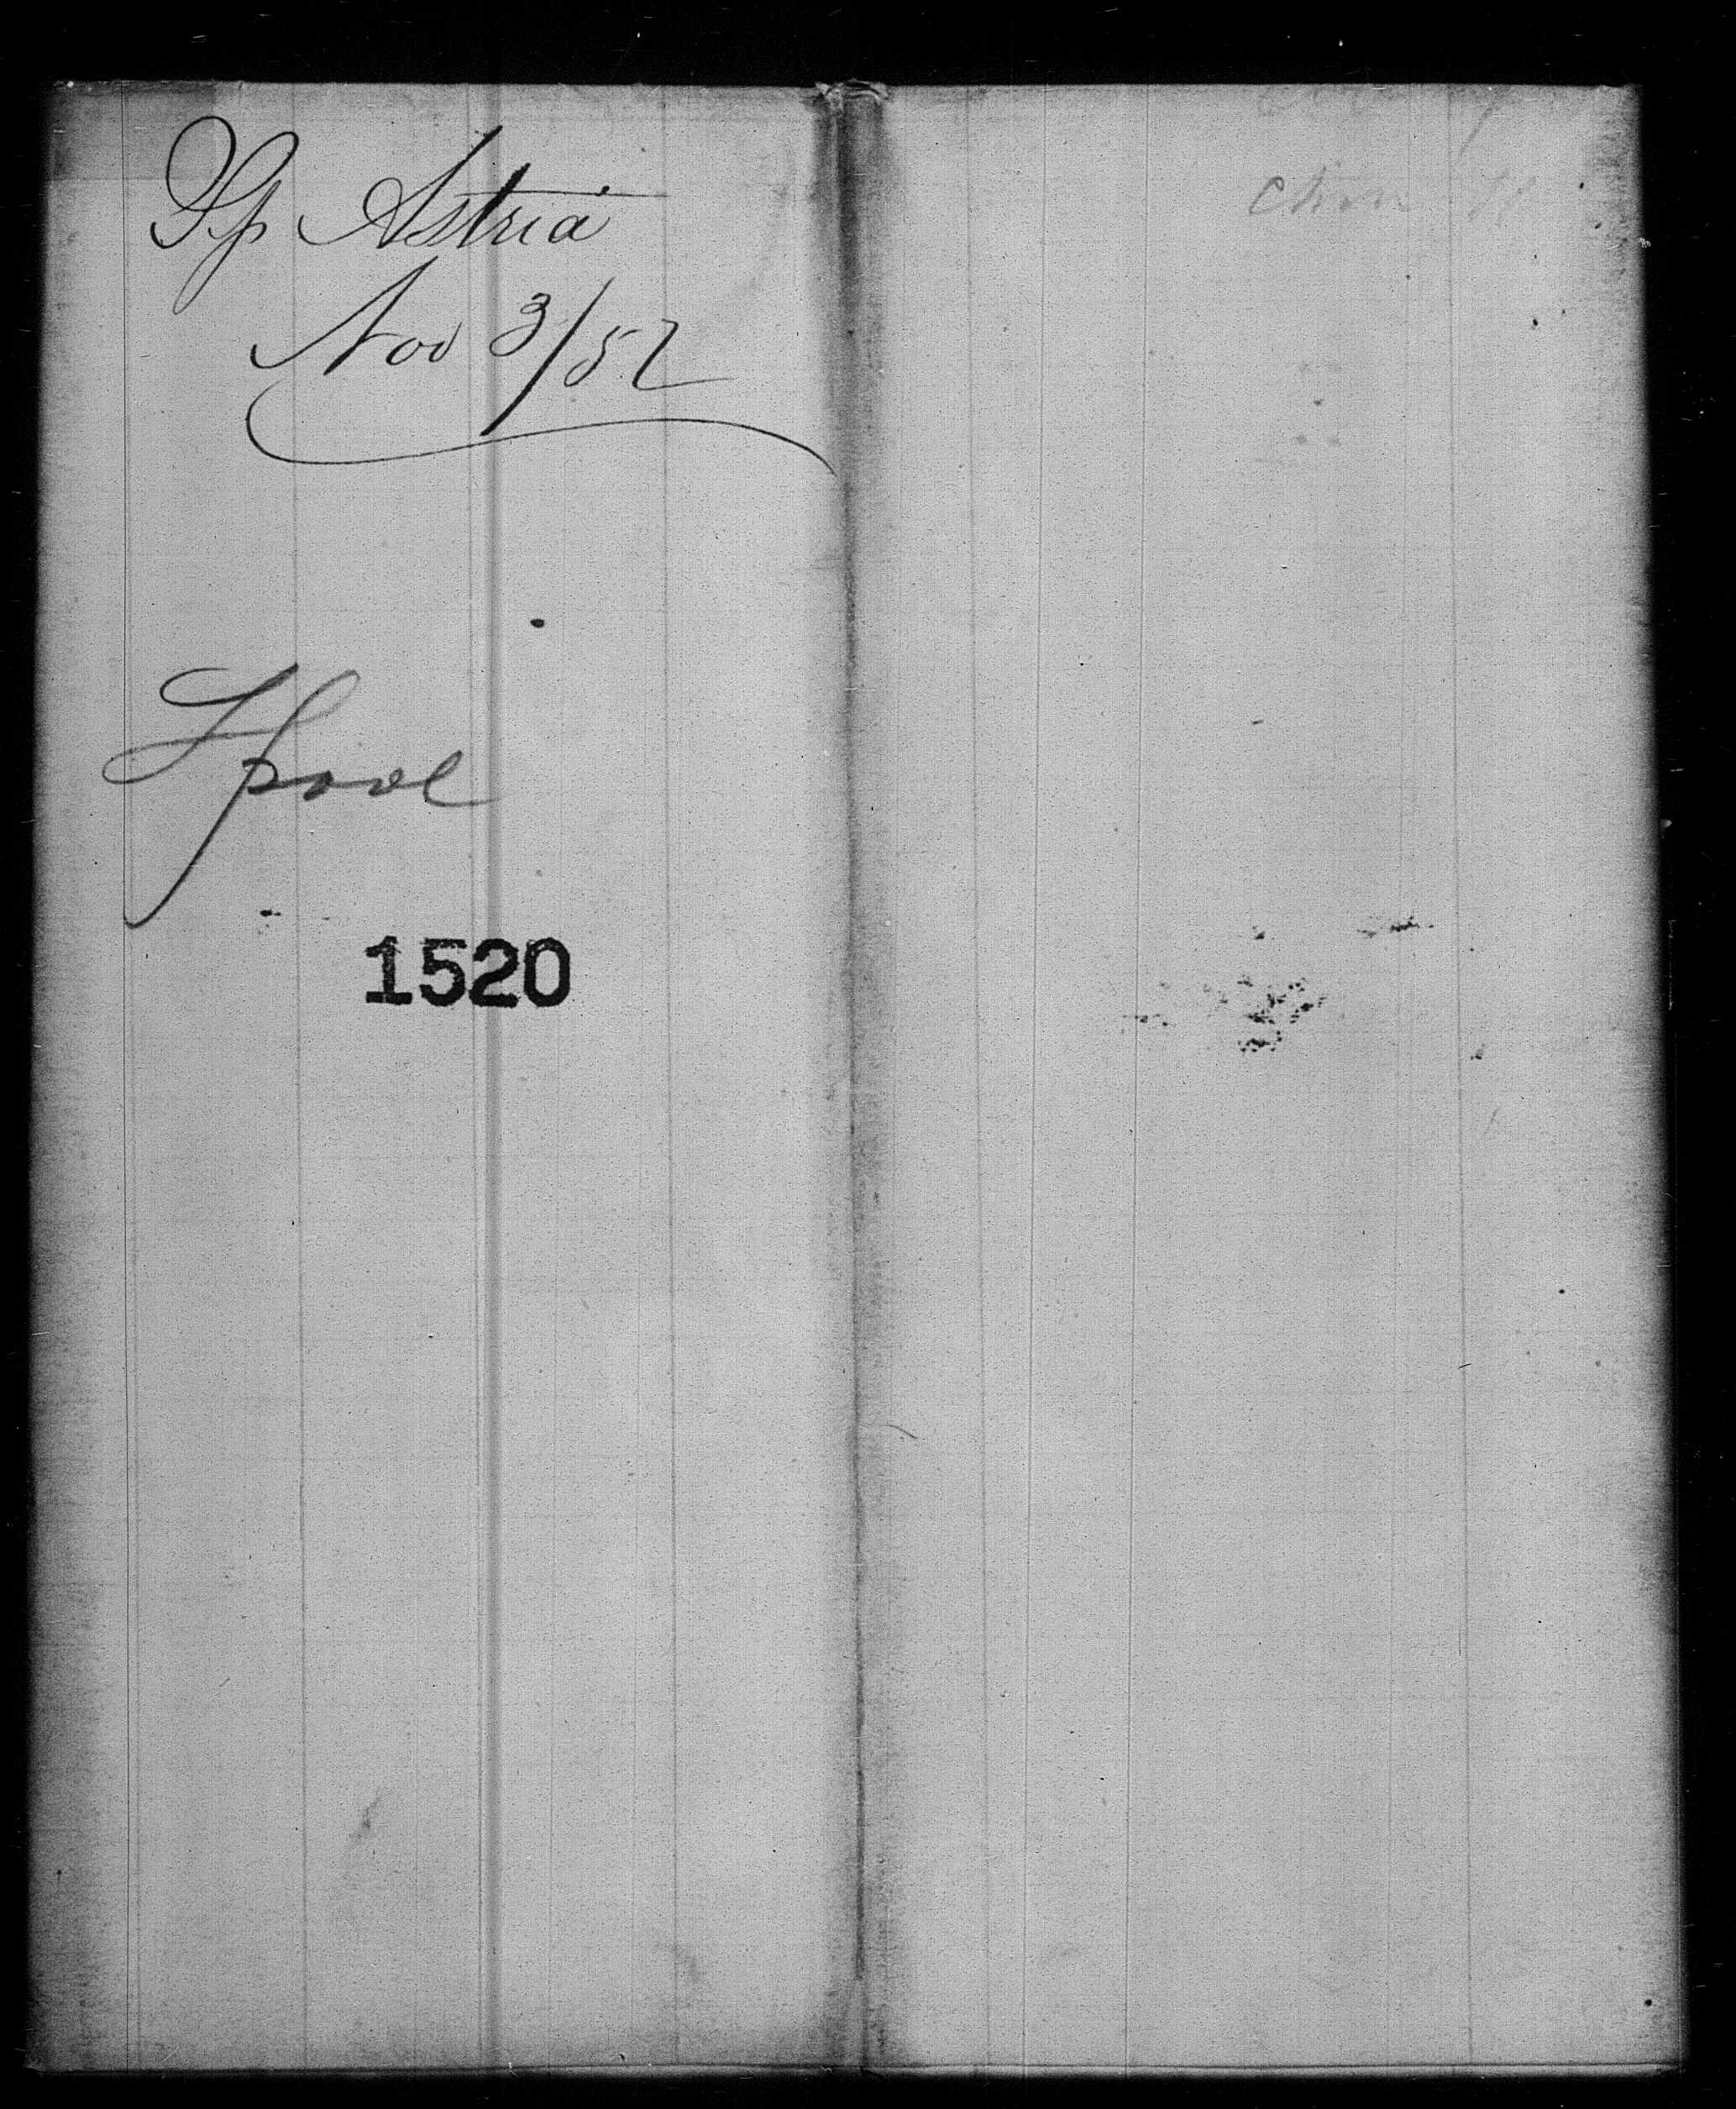 Sp Astria
Nov 3/52
Lpool
1520